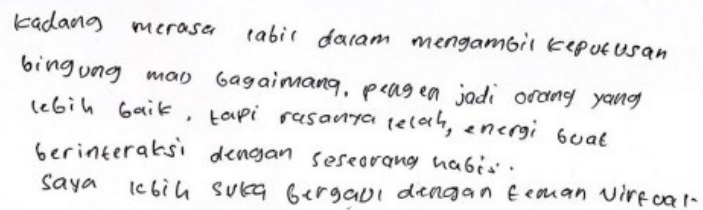 kadang merasa labil dalam mengambil keputusan
bingung mau bagaimana, pengen jadi orang yang
lebih baik, tapi rasanya lelah, energi buat
berinteraksi dengan seseorang habis.
Saya lebih suka bergaul dengan teman virtual.